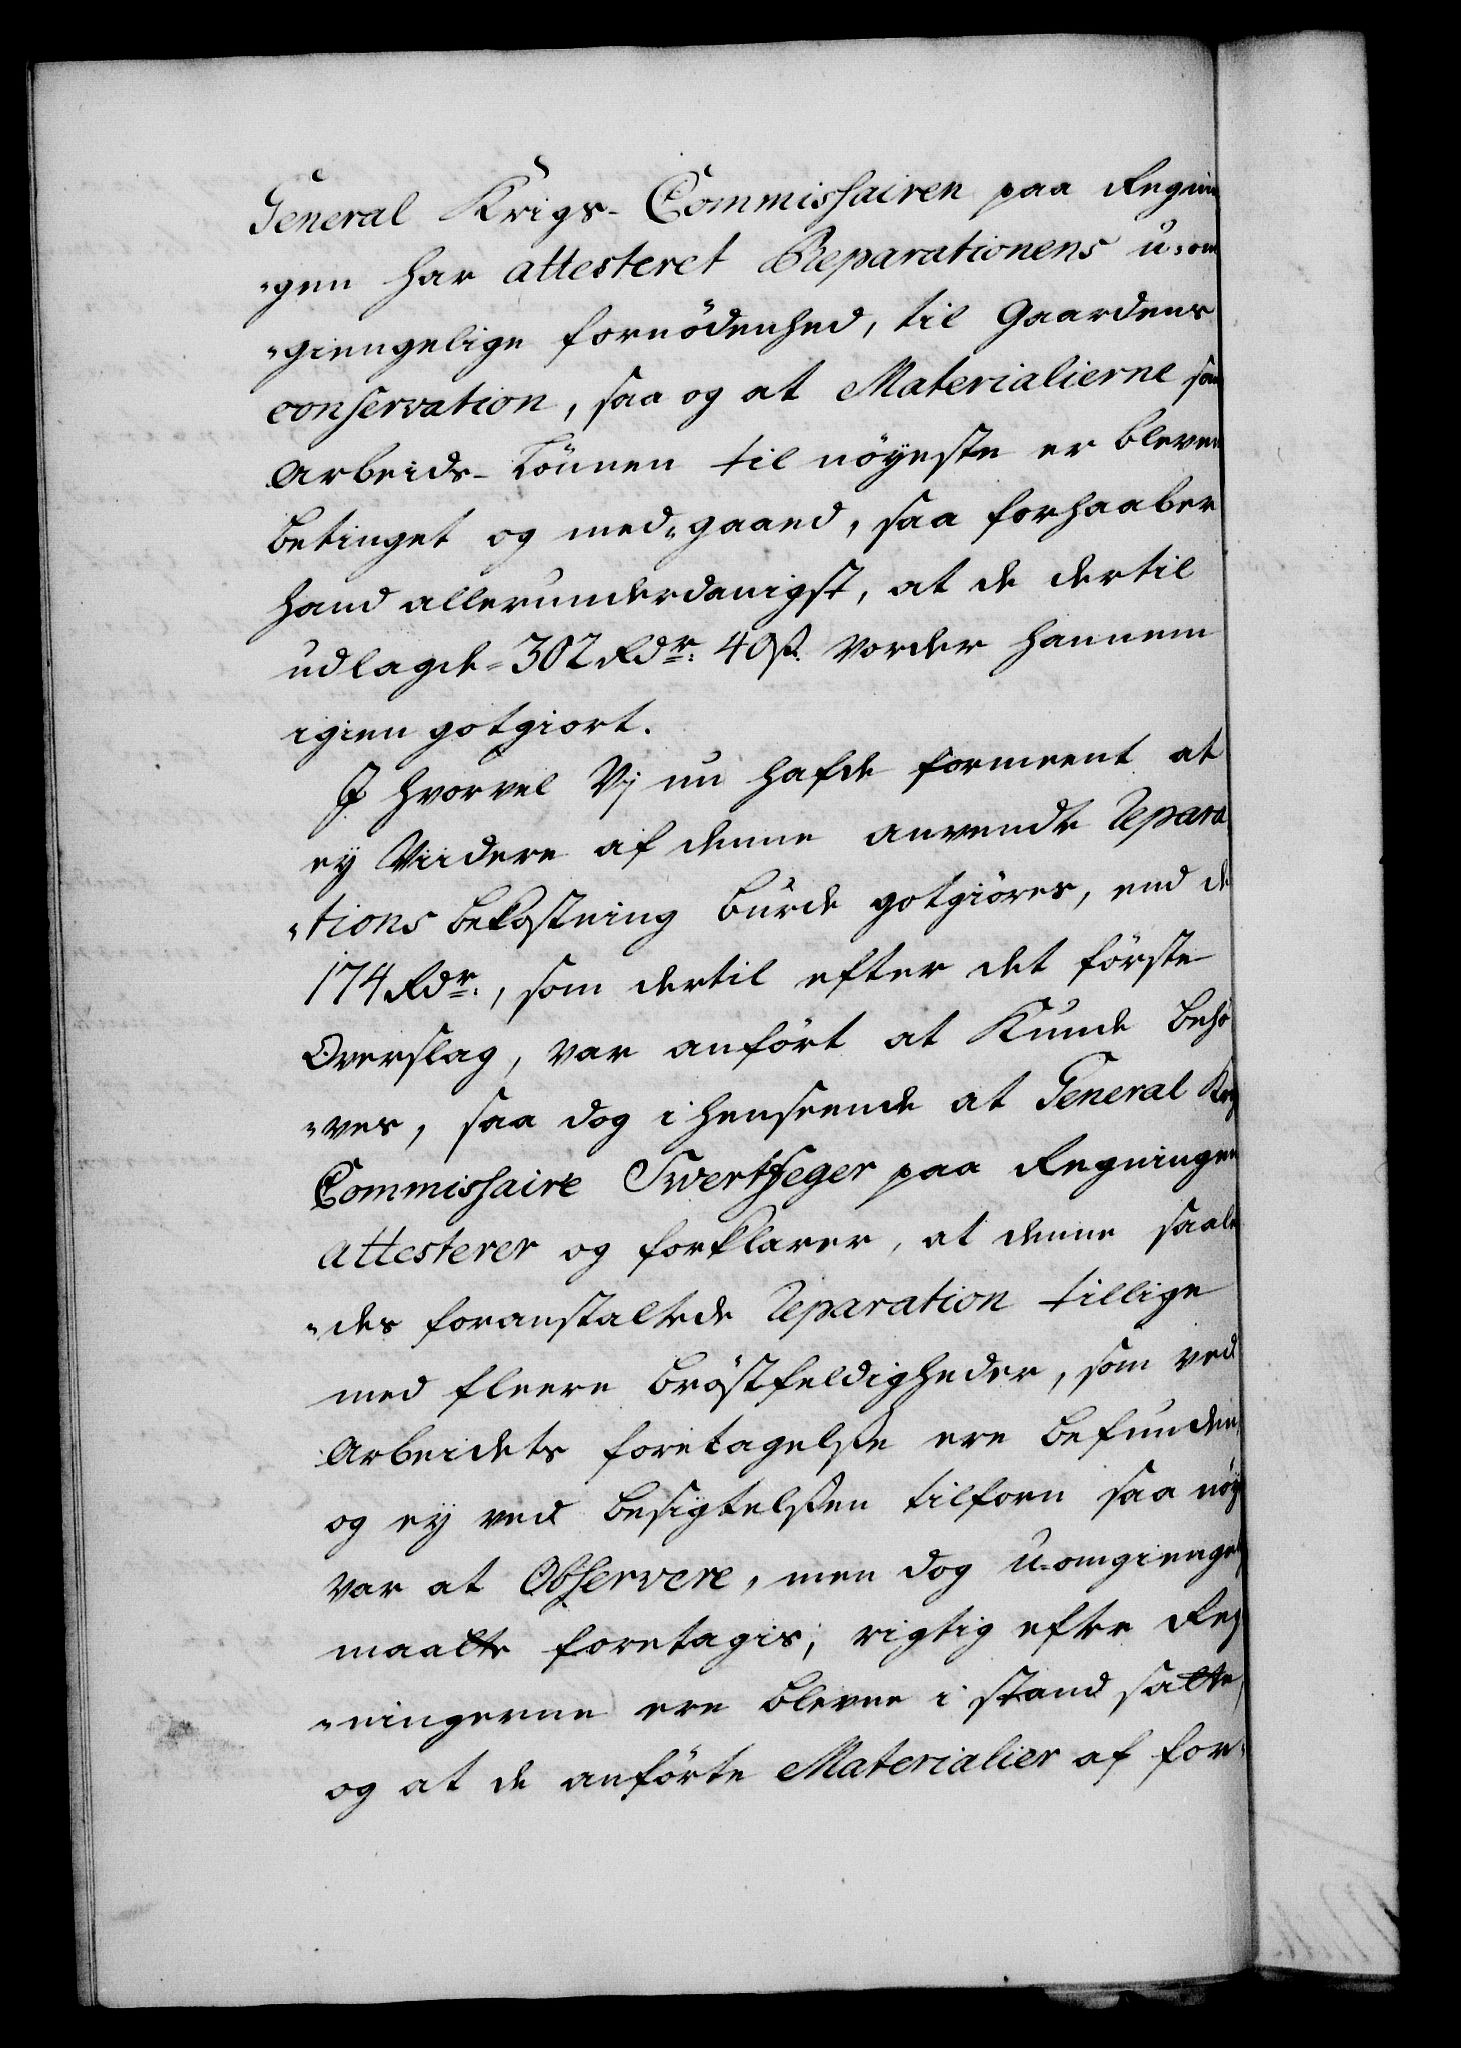 General Krigs-Commissairen paa Regnin
"gen har attesteret Reparationens u-om
"giengelige fornödenhed, til Gaardens
conservation, saa og at Materialierne sam
Arbeids-Lönnen til nöyeste er bleven
betinget og med-gaaed, saa forhaaber
hand allerunderdanigst, at de dertil
udlagde 302 Rdr: 40 ß. vorder hannem
igien gotgiort.
I hvorvel Vj nu hafde formeent at
ey Viidere af denne anvendte Repara
"tions bekostning burde gotgiöres, end de
174 Rdr:, som dertil efter det förste
Overslag, var anfört at Kunde behö
"ves, saa dog i henseende at General Krig
Commissaire Svertfeger paa Regningen
attesterer og forklarer, at denne saale
"des foranstaltede Reparation tillige
med fleere bröstfeldigheder, som ved
Arbeidets foretagelse ere befundene
og ey ved besigtelsen tilforn saa nöye
var at Observere, men dog u-omgiengel
maatte foretagis, rigtig efter Reg
"ningerne ere blevne i stand satte,
og at de anförte Materialier af for-